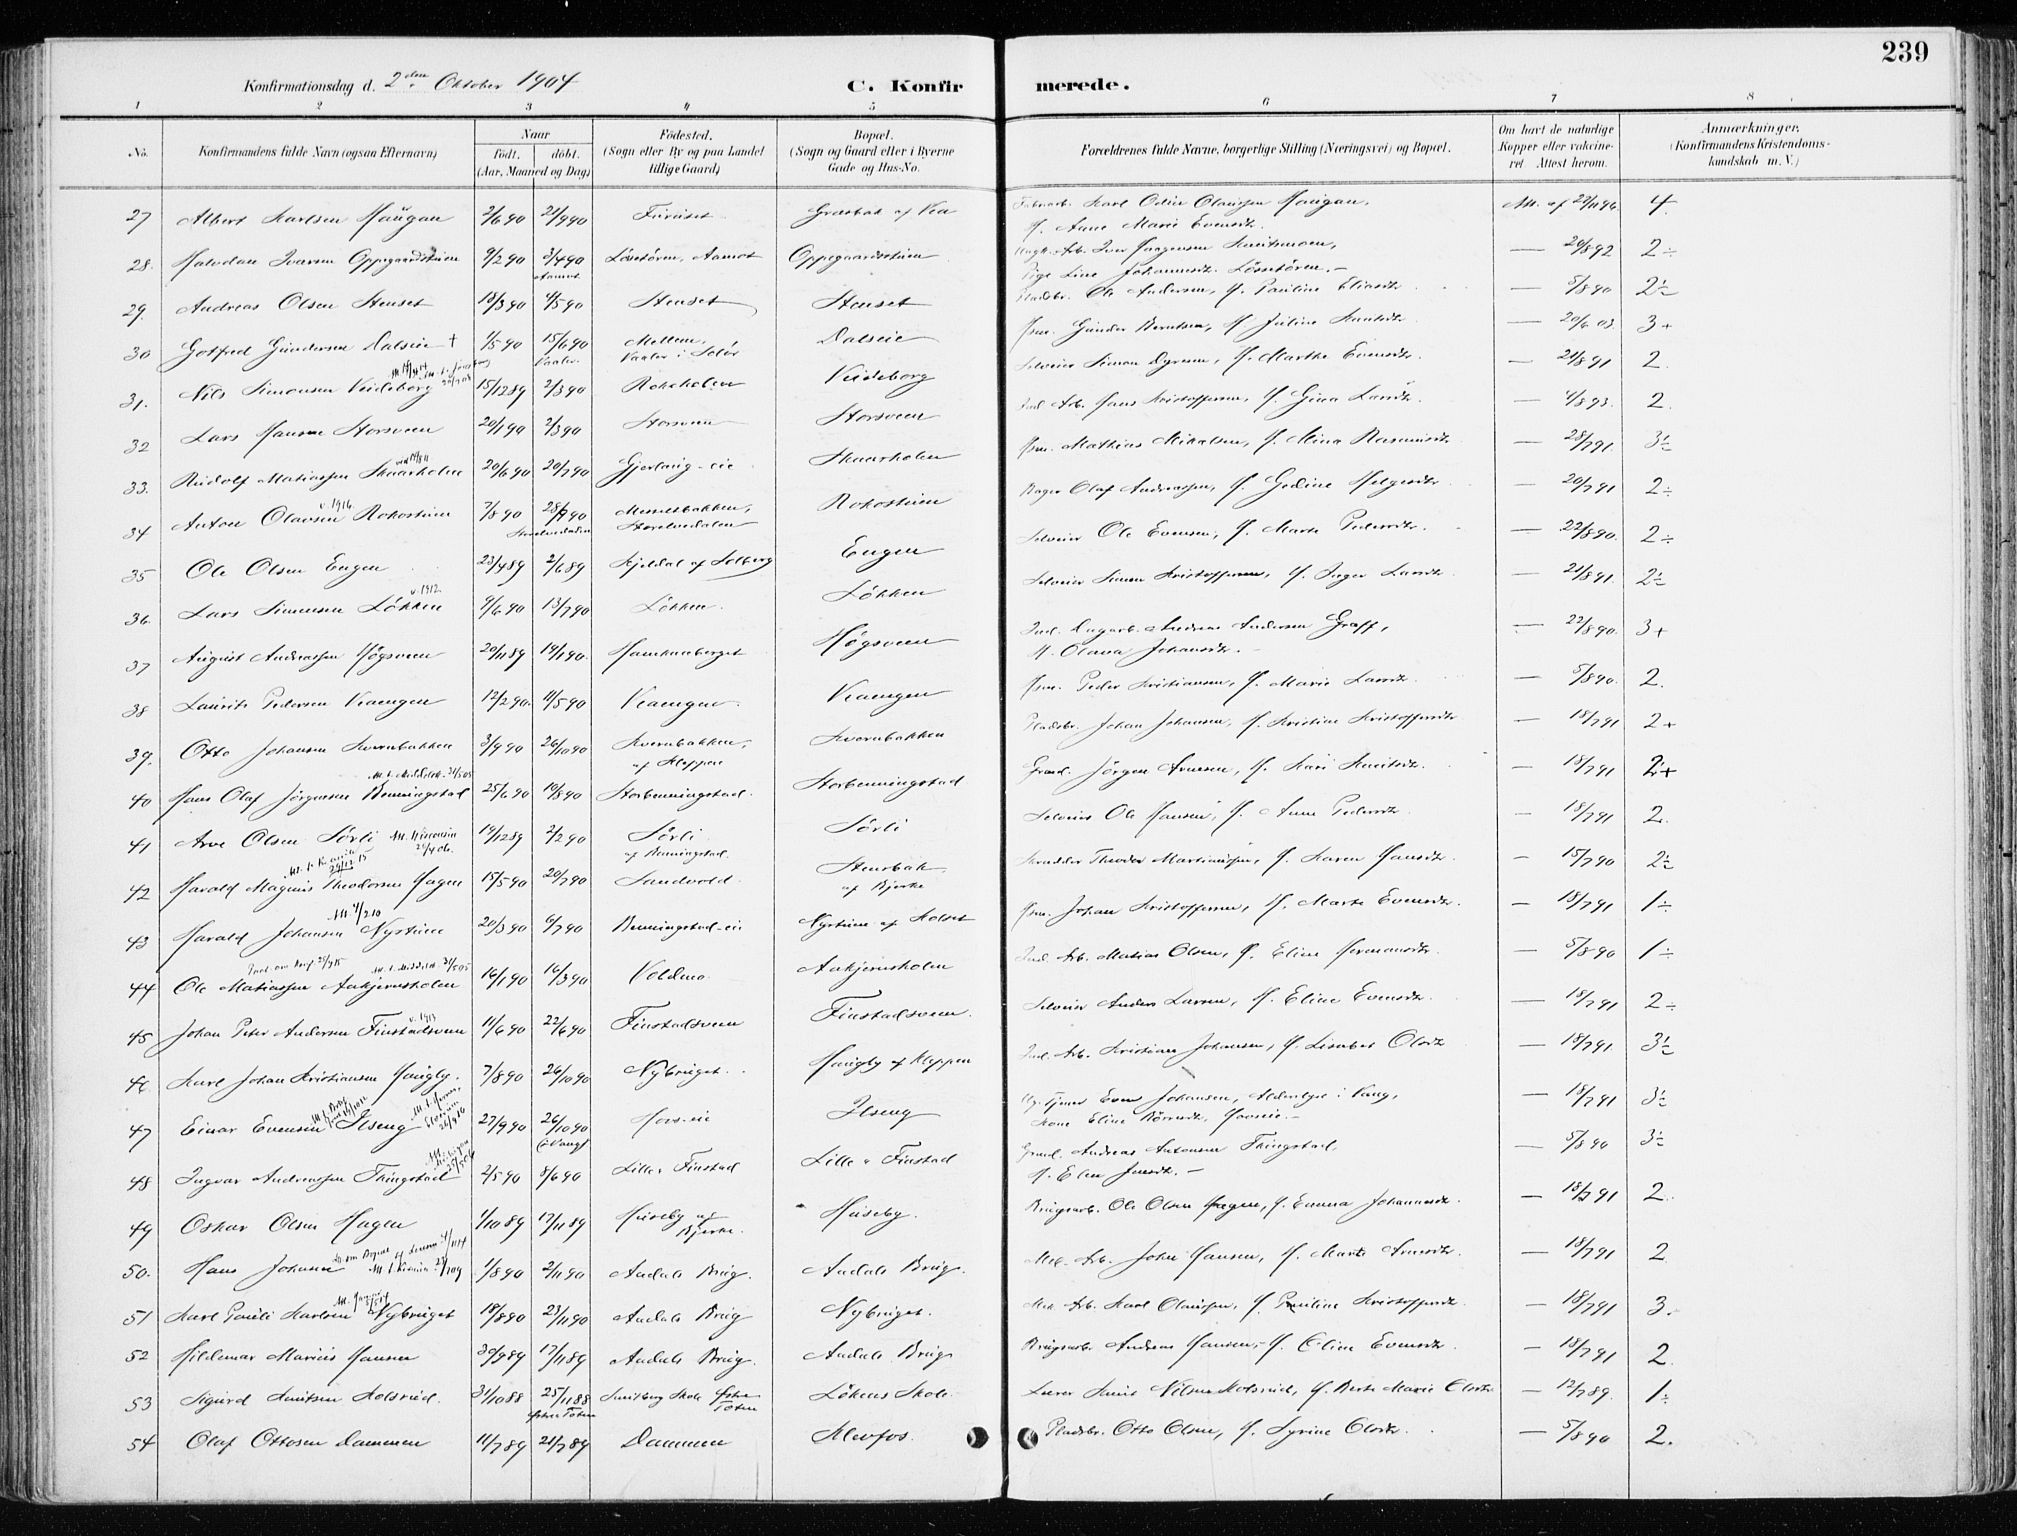 239
Konfirmationsdag d. 2den Oktober 1904
C. Konfirmerede.
1 2 3 4 5 6 7 8
No.
Konfirmandens fulde Navn (ogsaa Efternavn)
Naar
født. døbt.
(Aar, Maaned og Dag)
Fødested.
(Sogn eller By og paa Landet
tillige Gaard)
Bopæl.
(Sogn og Gaard eller i Byerne
Gade og Hus-No.
Forældrenes fulde Navne, borgerlige Stilling (Næringsvei) og Bopæl.
Om havt de naturlige
Kopper eller vakcine-
ret Attest herom.
Anmærkninger.
(Konfirmandens Kristendoms-
kundskab m. V.)
27 Albert Karlsen Haugan 2/6 90 21/9 90 Furuset Græsbak af Vea Karl Odin Olaussen Haugan, 4.
H. Anne Marie Evensdtr.
28. Halvdan Ivarsen Oppegaardstuen 9/2 90 3/4 90 Løsetøren, Aamot Oppegaardsstuen Arb. Iver Haagensen — 20/8 92 2÷
Aamot Pige Line Johannesdtr. Løssetøren. —
29. Andreas Olsen Stenset 18/3 90 4/5 90 Stenset Stenset Pladsbr. Ole Andersen, H. Pauline Eliasdtr. — 5/8 90 2÷
30 Gotfred Gundersen Dalseie + 1/5 90 15/6 90 Mellem, Dalseie Hsm. Gunder Berntsen, H. Juline Knutsdtr. — 20/6 03. 3+
Vaaler. Vaaler i Solør
31. Nils Simonsen Veideborg 15/12 89 2/3 90 Rokoholen Veideborg Selveier Simon Dyremo, H. Marthe Evensdtr. — 21/8 91 2.
32 Lars Hansen Storsveen 20/1 90 2/3 90 Storsveen Storsveen Ind. Arb. Hans Kristoffersen, H. Gina Larsdtr. — 4/8 93. 2.
33. Rudolf Matiassen Skaarholen 20/6 90 20/7 90 Gjerlaug-eie Skaarholen Hsm. Mathias Mikalsen, H. Mina Rasmusdtr. — 28/7 91. 3÷
v. 1916.
34 Anton Olavsen Rokostuen 7/8 90 28/9 90 Messeltbakken, Rokostuen Bager Olaf Andreassen, H. Gedine Helgesdtr. — 20/7 91 2÷
Storelvedalen Storelvedalen
35 Ole Olsen Engen 23/4 89 2/6 89 Kjeldal af Solberg Engen Selveier Ole Evensen, H. Marte Pedersdtr. — 22/8 90. 2÷
v. 1912.
36. Lars Simensen Løkken 9/6 90 13/7 90 Løkken. Løkken Selveier Simen Kristoffersen, H. Inger Larsdtr. — 21/8 91. 2÷
37 August Andreassen Høgsveen 20/11 89 19/1 90. Hamkneberget Høgsveen Ind. Dagarb. Andreas Andersen Graff, — 22/8 90. 3+
H. Olava Johansdtr. —
38 Laurits Pedersen Veaengen 12/2 90. 11/5 90 Veaengen Veaengen Hsm. Peder Kristiansen, H. Marie Larsdtr. — 5/8 90. 2.
39. Otto Johansen Kvernbakken 3/9 90 26/10 90 Kvernbakken, Kvernbakken Pladsbr. Johan Johansen, H. Kristine Kristoffersdtr. — 18/7 91 2+
af Kleppen
40 Hans Olaf Jørgensen Benningstad 25/6 90 10/8 90 Storbenningstad. Storbenningstad Grmd. Jørgen Arnesen, H. Kari Knutsdtr. — 18/7 91 2+
41 Arve Olsen Sørli Att. Wisconsin 26/4 06. 19/12 89 2/2 90 Sørli Sørli Selveier Ole Hansen, H. Anne Pedersdtr. — 18/7 91 2.
af Benningstad.
42 Harald Magnus Theodorsen Hagen 15/5 90 20/7 90 Sandvold Stensbak Skrædder Theodor Martinussen, H. Karen Hansdtr. — 15/7 90 2÷
af Bjerke
43 Harald Johansen Nystuen 20/3 90 6/7 90 Benningstad-eie Nystuen af Kolset Hsm. Johan Kristoffersen, H. Marte Evensdtr. — 18/7 91 1÷
44 Ole Matiassen Aakjernsholen 16/1 90 16/3 90 Voldmo Aakjernsholen Ind. Arb. Matias Olsen, H. Eline Hermansdtr. — 5/8 90 1÷
v. 1913
45 Johan Peter Andersen Finstadsveen 11/6 90 22/6 90 Finstadsveen Finstadsveen. Selveier Anders Larsen, H. Eline Evensdtr. — 18/7 91 2÷
46 Karl Johan Kristiansen Haugby. 7/8 90 26/10 90 Nybruget. Haugby af Kleppen Ind. Arb. Kristian Johansen, H. Lisabet Olsdtr. — 18/7 91. 3÷
47 Einar Evensen Ilseng 27/9 90 26/10 90 Hovs-eie Ilseng Tjener Even Johansen, Alderslyst i Vang, — 18/7 91 3÷
(i Vang)
48 Ingvar Andreassen Thingstad 2/5 90 8/6 90 Lille Finstad Lille Finstad Grmd. Andreas Antonsen Thingstad, — 5/8 90 3÷
H. Elen Jensdtr. —
49 Oskar Olsen Hagen 1/10 89 17/11 89 Huseby af Huseby. Brugsarb. Ole Olsen Hagen, H. Emma Johannesdtr. — 18/7 91 2.
Bjerke.
50. Hans Johnsen 1/8 90 2/11 90 Aadals Brug. Aadals Brug. Mek. Arb. John Hansen, H. Marte Arnesdtr. — 18/7 91 2
51 Karl Pauli Karlsen Nybruget 18/8 90 23/11 90 Aadals Brug Nybruget. Mek. Arb. Karl Olaussen, H. Pauline Kristoffersdtr. — 18/7 91 3.
52 Hildemar Marius Hansen 30/9 89 17/11 89 Aadals Brug. Aadals Brug Brugsarb. Andreas Hansen, H. Oline Evensdtr. — 18/7 91 2.
53 Sigurd Knutsen Kolsrud. 31/10 88 25/11 88 Smidberg Skole Østre Toten Løkens Skole Lærer Knut Nilsen Kolsrud, H. Berte Marie Olsdtr. — 12/7 89. 1÷
Østre Toten
54 Olaf Ottosen Dammen 11/7 89 21/7 89 Dammen Klevfos. Pladsbr. Otto Olsen, H. Syrine Olsdtr. — 5/8 90 2.